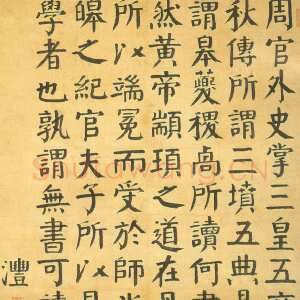 周官外史掌三皇五
秋傳所謂三墳五典
謂皋夔稷卨所讀何書
然黃帝顓頊之道在丹
所以端冕而受於師尚
皞之紀官夫子所以
學者也孰謂無書可讀
灃